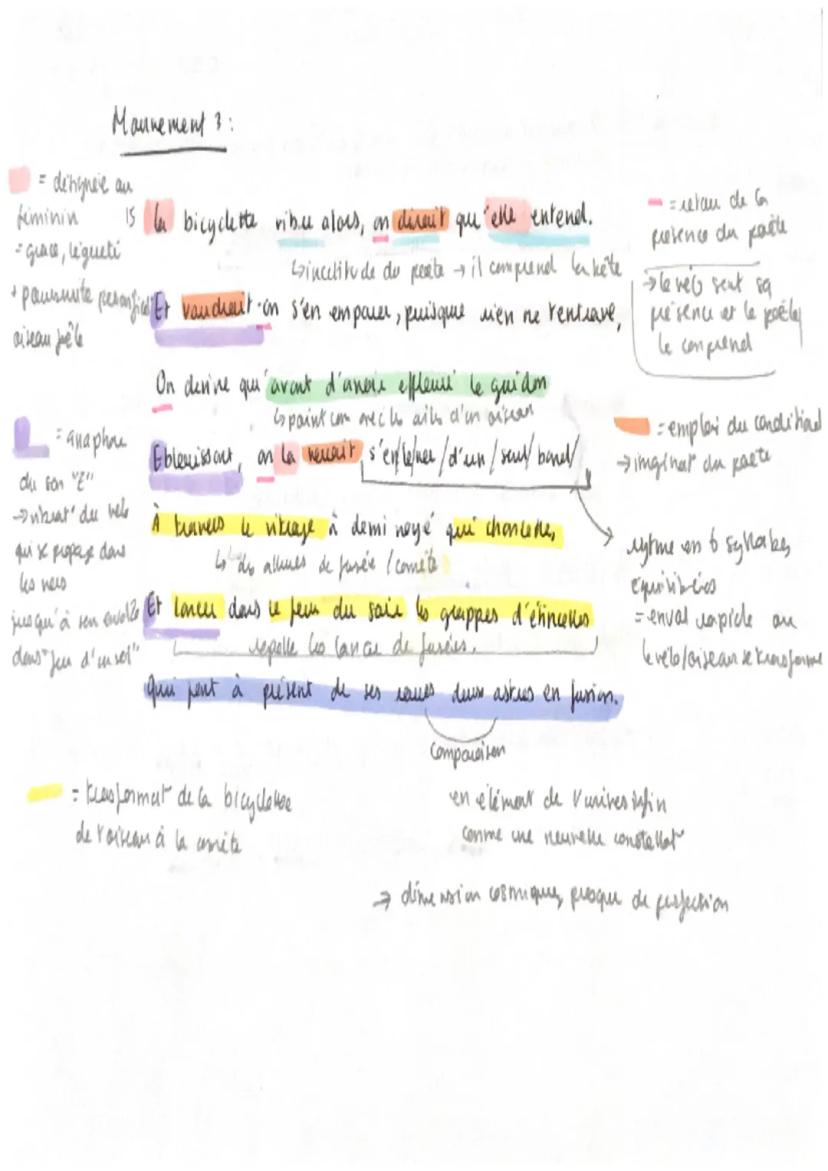 Mouvement 3 :
= désignée au
féminin
= grace, légueté
+ poursuite
oiseau
15 la bicyclette vibre alors, on dirait qu'elle entend.
↳ incertitude du poete → il comprend la bête
Et voudrait-on s'en emparer, puisque rien ne l'entrave,
On devine qu'avant d'avoir effleuré le guidon
↳ point com avec les ailes d'un oiseau
Eblouissant, on la verrait s'en/le/ver/d'un/seul/bond/
À travers le vitrage à demi noyé qui chancelle,
↳ des allures de fusée / comète
Et lancer dans le feu du soir les grappes d'étincelles
rapelle les lancer de fusées.
Qui font à présent de ses roues deux astres en fusion.
comparaison
= retour de la
présence du poète
→ le vélo sent sa
présence et le poète
le comprend
= anaphore
du son "E"
→ vibrat° du velo
qui se propage dans
les vers
jusqu'à son envol
dans
= emploi du conditionnel
→ imaginat° du poete
rytme en 6 syllabes
équilibrées
= envol rapide ou
le vélo/oiseau se transforme
= transformat° de la bicyclette
de l'oiseau à la comète
en élément de l'univers infin
comme une nouvelle constellat°
→ dimension cosmique, presque de perfection